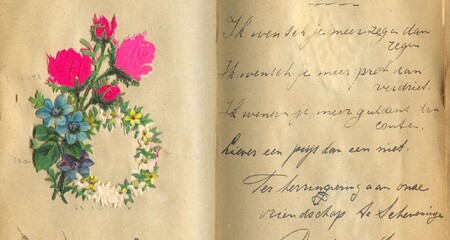 Ik wensch je meer zegen dan
regen
Ik wensch je meer pret dan
verdriet.
Ik wensch je meer guldens dan
centen.
Liever een prijs dan een niet.
Ter herinnering aan onze
vriendschap te Scheveningen